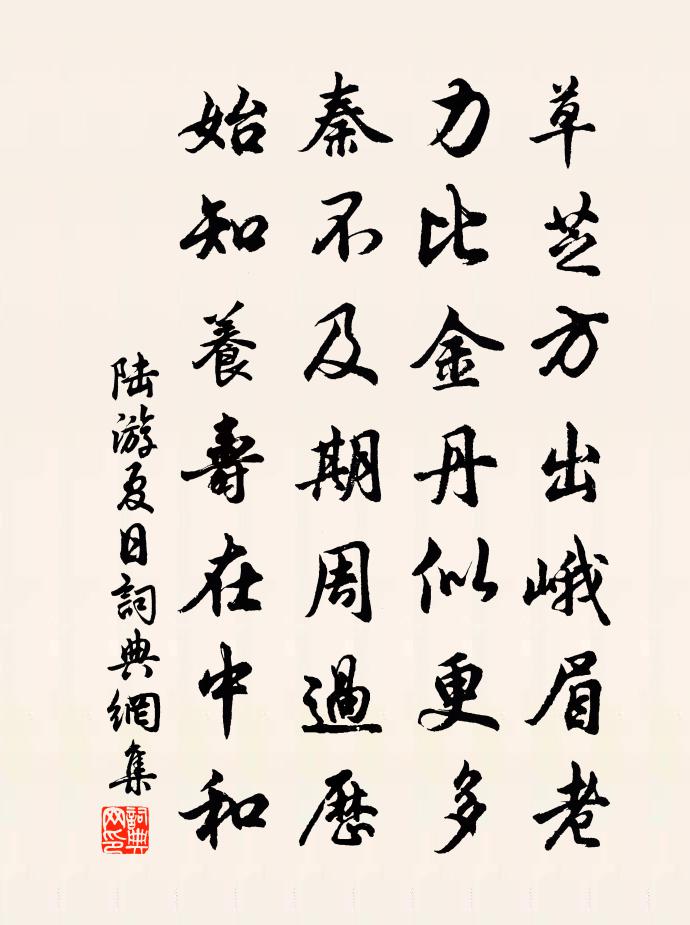 草芝方出峨眉老
力比金丹似更多
秦不及期周過歷
始知養壽在中和
陆游夏日詞典網集
詞典網印